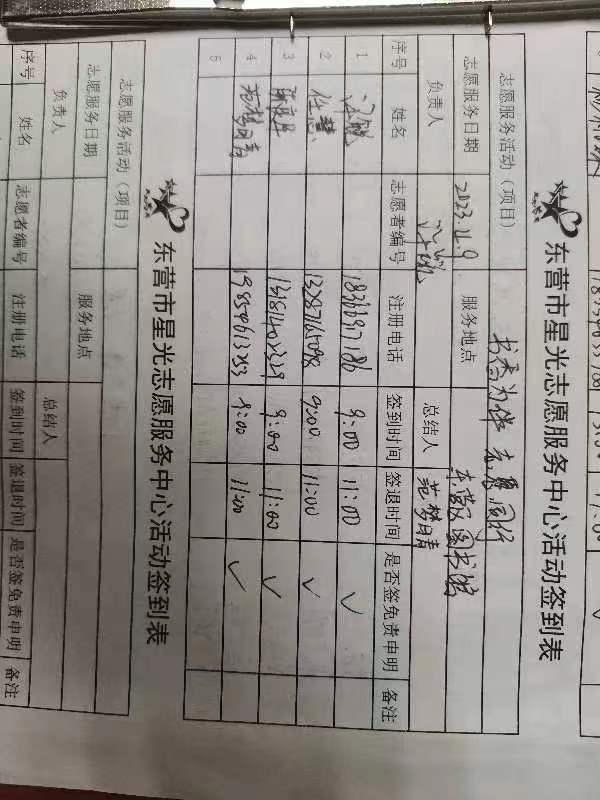 东营市星光志愿服务中心活动签到表
志愿服务活动（项目） 书香为伴 志愿同行
志愿服务日期 2023.11.9 服务地点 东营区图书馆
负责人 总结人 范梦晴
序号 姓名 志愿者编号 注册电话 签到时间 签退时间 是否签免责申明 备注
1 9:00 11:00 ✓
2 任慧 13287165098 9:00 11:00 ✓
3 9:00 11:00 ✓
4 范梦晴 19854613253 9:00 11:00 ✓
5
东营市星光志愿服务中心活动签到表
志愿服务活动（项目）
志愿服务日期 服务地点
负责人 总结人
序号 姓名 志愿者编号 注册电话 签到时间 签退时间 是否签免责申明 备注